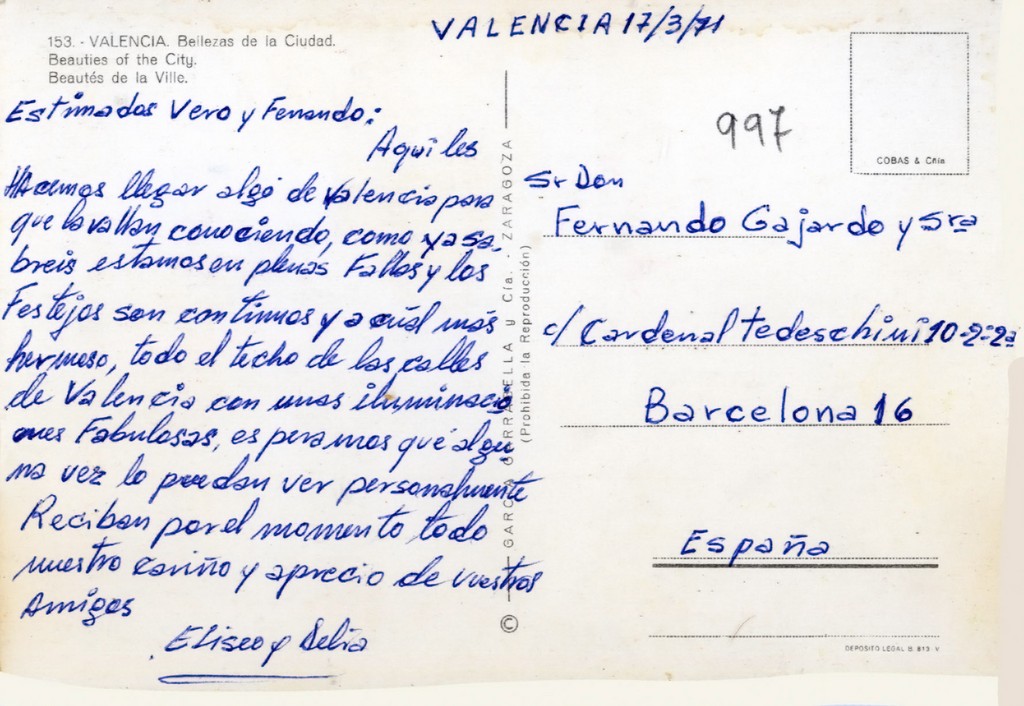 VALENCIA 17/3/71
153. - VALENCIA. Bellezas de la Ciudad.
Beauties of the City.
Beautés de la Ville.
Estimados Vero y Fernando:
Aqui les
Hacemos llegar algo de Valencia para
que la vallan conociendo, como ya sa-
breis estamos en plenas Fallas y los
Festejos son continuos y a cuál más
hermoso, todo el techo de las calles
de Valencia con unas iluminaci
ones Fabulosas, esperamos qué algu-
na vez lo puedan ver personalmente
Reciban por el momento todo
nuestro cariño y aprecio de vuestros
Amigos
Eliseo y Delia
© — GARCIA GARRABELLA y Cía. - ZARAGOZA —
(Prohibida la Reproducción)
997
COBAS & Cñía
Sr Don
Fernando Gajardo y Sra
c/ Cardenal Tedeschini 10-2=2a
Barcelona 16
España
DEPOSITO LEGAL B. 813 V